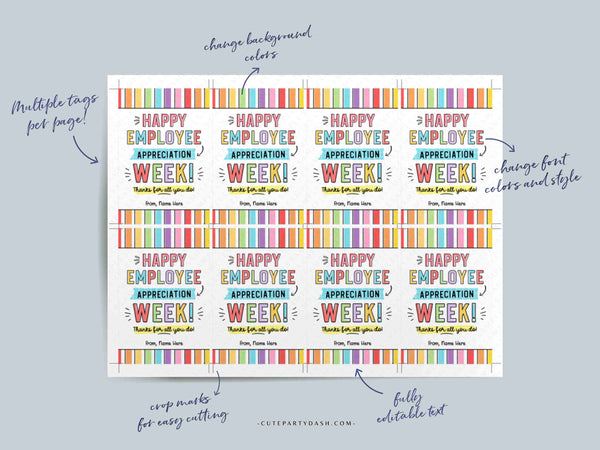 change background
colors
Multiple tags
per page!
HAPPY
EMPLOYEE
APPRECIATION
WEEK!
Thanks for all you do!
from, Name Here
HAPPY
EMPLOYEE
APPRECIATION
WEEK!
Thanks for all you do!
from, Name Here
HAPPY
EMPLOYEE
APPRECIATION
WEEK!
Thanks for all you do!
from, Name Here
HAPPY
EMPLOYEE
APPRECIATION
WEEK!
Thanks for all you do!
from, Name Here
change font
colors and style
HAPPY
EMPLOYEE
APPRECIATION
WEEK!
Thanks for all you do!
from, Name Here
HAPPY
EMPLOYEE
APPRECIATION
WEEK!
Thanks for all you do!
from, Name Here
HAPPY
EMPLOYEE
APPRECIATION
WEEK!
Thanks for all you do!
from, Name Here
HAPPY
EMPLOYEE
APPRECIATION
WEEK!
Thanks for all you do!
from, Name Here
crop marks
for easy cutting
fully
editable text
-CUTEPARTYDASH.COM-